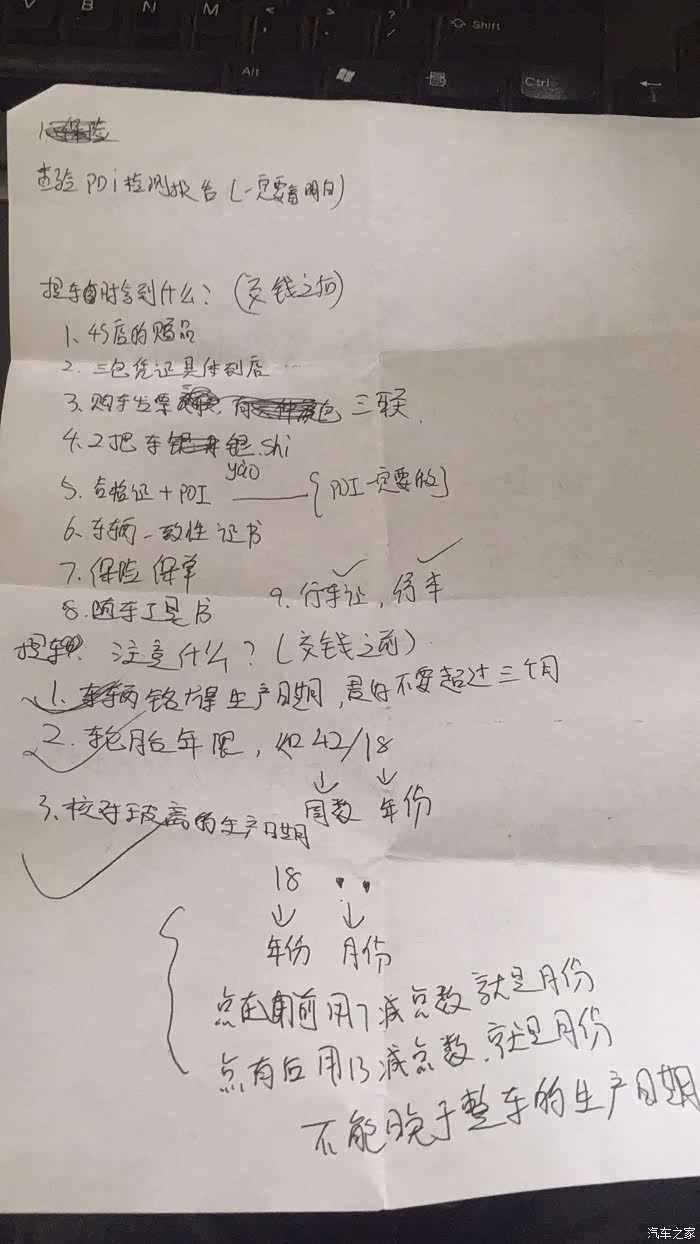 V B N M < , > . ? / Shift
Alt Ctrl
1.保险
查验PDi检测报告(一定要看明白)
提车时拿到什么?(交钱之后)
1、4S店的赠品
2.三包凭证具体到店
3.购车发票 三联.
4.2把车钥shi
yào
5.合格证+PDI ——{PDI一定要的}
6.车辆一致性证书
7.保险保单
9.行车证,行车
8.随车工具书
提车 注意什么?(交钱之前)
1.车辆铭牌生产日期,最好不要超过三个月
2.轮胎年限,如42/18
周数 年份
3.核对玻离的生产日期
18 ··
年份 月份
点在前用7减点数就是月份
点在后用13减点数,就是月份
不能晚于整车的生产日期
汽车之家